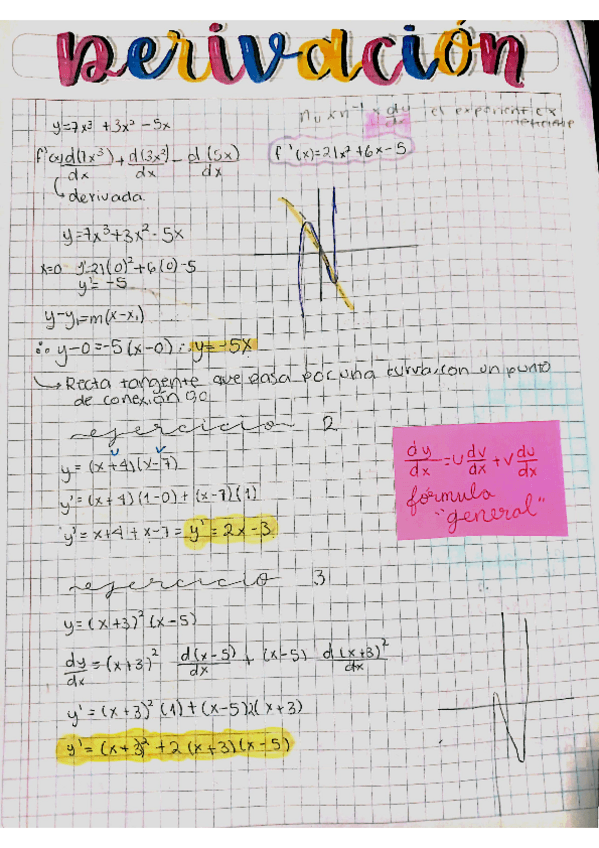 Derivación
y=7x³ + 3x² - 5x
nu xn⁻¹ × du/dx el exponente
f'(x) d(7x³)/dx + d(3x²)/dx - d(5x)/dx
f'(x)=21x²+6x-5
derivada
y=7x³+3x²-5x
x=0 y'=21(0)²+6(0)-5
y'=-5
y-y₁=m(x-x₁)
∴ y-0=-5(x-0) ∴ y=-5x
Recta tangente que pasa por una curva, con un punto
de conexión
ejercicio 2
y=(x+4)(x-7)
u v
y'=(x+4)(1-0)+(x-7)(1)
y'=x+4+x-7= y'=2x-3
dy/dx=u dv/dx+v du/dx
fórmula
"general"
ejercicio 3
y=(x+3)²(x-5)
dy/dx=(x+3)² d(x-5)/dx + (x-5) d(x+3)²/dx
y'=(x+3)²(1)+(x-5)2(x+3)
y'=(x+3)²+2(x+3)(x-5)